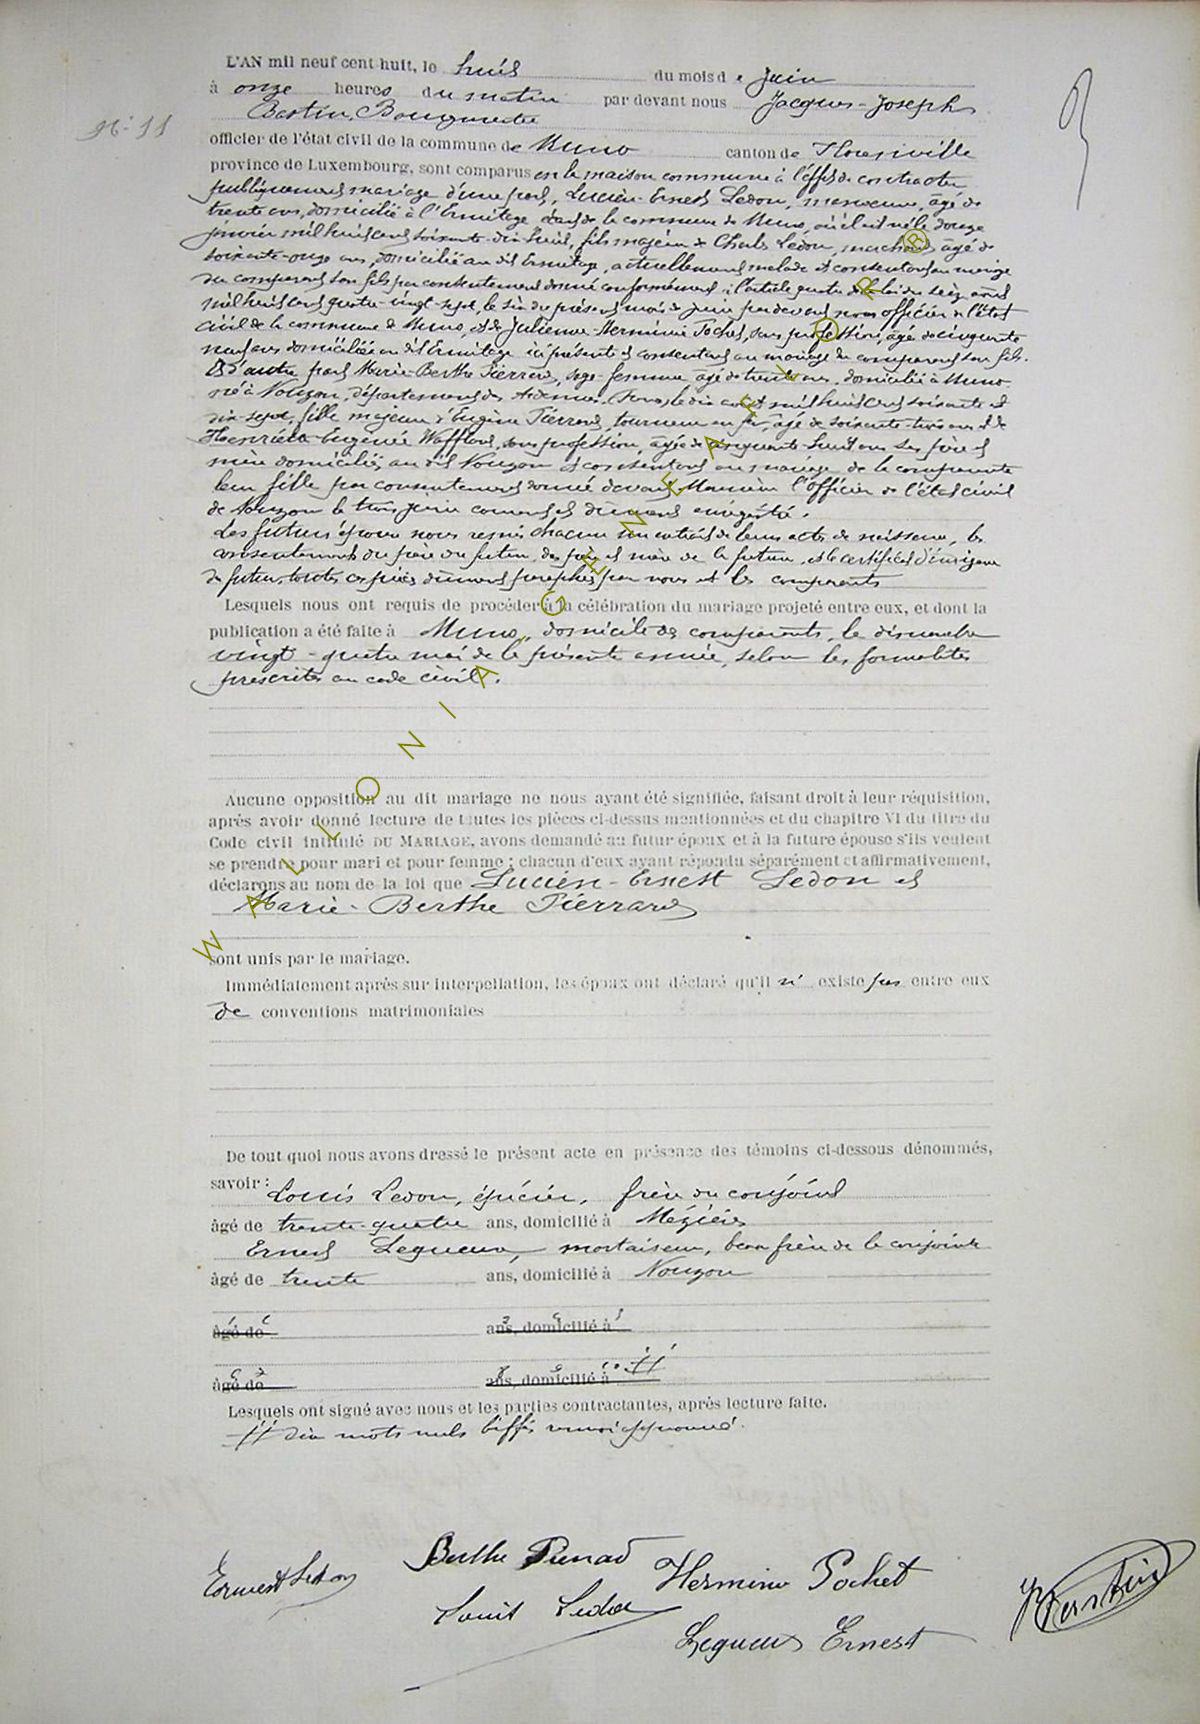 L'AN mil neuf cent huit, le huit du mois de Juin
à onze heures du matin par devant nous Jacques-Joseph
Bestin, Bourgmestre
N° 11
officier de l'état civil de la commune de Muno canton de Florenville
province de Luxembourg, sont comparus en la maison commune à l'effet de contracter
publiquement mariage d'une part, Lucien-Ernest Ledon, manoeuvre, âgé de
trente ans, domicilié à l'Ermitage dans la commune de Muno, où il est né le douze
janvier mil huit cent soixante-dix-huit, fils majeur de Charles Ledon, marchand, âgé de
soixante-onze ans, domicilié au dit Ermitage, actuellement malade et consentant au mariage
du comparant son fils par consentement donné conformément à l'article quatre de la loi du seize août
mil huit cent quatre-vingt-sept, le six du présent mois de juin par devant nous officier de l'état
civil de la commune de Muno, et de Julienne-Herminie Pochet, sans profession, âgée de cinquante
neuf ans domiciliée au dit Ermitage ici présente et consentant au mariage du comparant son fils.
Et d'autre part Marie-Berthe Pierrard, sage-femme âgée de trente ans, domiciliée à Muno
née à Nouzon, département des Ardennes, (France) le dix août mil huit cent soixante et
dix-sept, fille majeure d'Eugène Pierrard, tourneur en fer, âgé de soixante-trois ans et de
Henriette-Eugénie Wafflard, sans profession, âgée de cinquante-huit ans ses père et
mère domiciliés au dit Nouzon et consentant au mariage de la comparante
leur fille par consentement donné devant Monsieur l'officier de l'état civil
de Nouzon le trois juin courant et dûment enregistré.
Les futurs époux nous remis chacun un extrait de leurs actes de naissance, les
consentements du père du futur, des père et mère de la future, et le certificat d'indigence
du futur, toutes ces pièces dûment paraphées par nous et les comparants
Lesquels nous ont requis de procéder à la célébration du mariage projeté entre eux, et dont la
publication a été faite à Muno, domicile des comparants, le dimanche
vingt-quatre mai de la présente année, selon les formalités
prescrites au code civil.
Aucune opposition au dit mariage ne nous ayant été signifiée, faisant droit à leur réquisition,
après avoir donné lecture de toutes les pièces ci-dessus mentionnées et du chapitre VI du titre du
Code civil intitulé DU MARIAGE, avons demandé au futur époux et à la future épouse s'ils veulent
se prendre pour mari et pour femme ; chacun d'eux ayant répondu séparément et affirmativement,
déclarons au nom de la loi que Lucien-Ernest Ledon et
Marie-Berthe Pierrard
sont unis par le mariage.
Immédiatement après sur interpellation, les époux ont déclaré qu'il n' existe pas entre eux
de conventions matrimoniales
De tout quoi nous avons dressé le présent acte en présence des témoins ci-dessous dénommés,
savoir : Louis Ledon, épicier, frère du conjoint
âgé de trente-quatre ans, domicilié à Mézières
Ernest Legueux, mortaiseur, beau frère de la conjointe
âgé de trente ans, domicilié à Nouzon
âgé de ans, domicilié à
âgé de ans, domicilié à #
Lesquels ont signé avec nous et les parties contractantes, après lecture faite.
# dix mots nuls biffés renvoi approuvé.
Ernest Ledon
Berthe Pierrard
Hermine Pochet
Louis Ledon
Legueux Ernest
JJBestin
WALLONIA GENEALOR ®